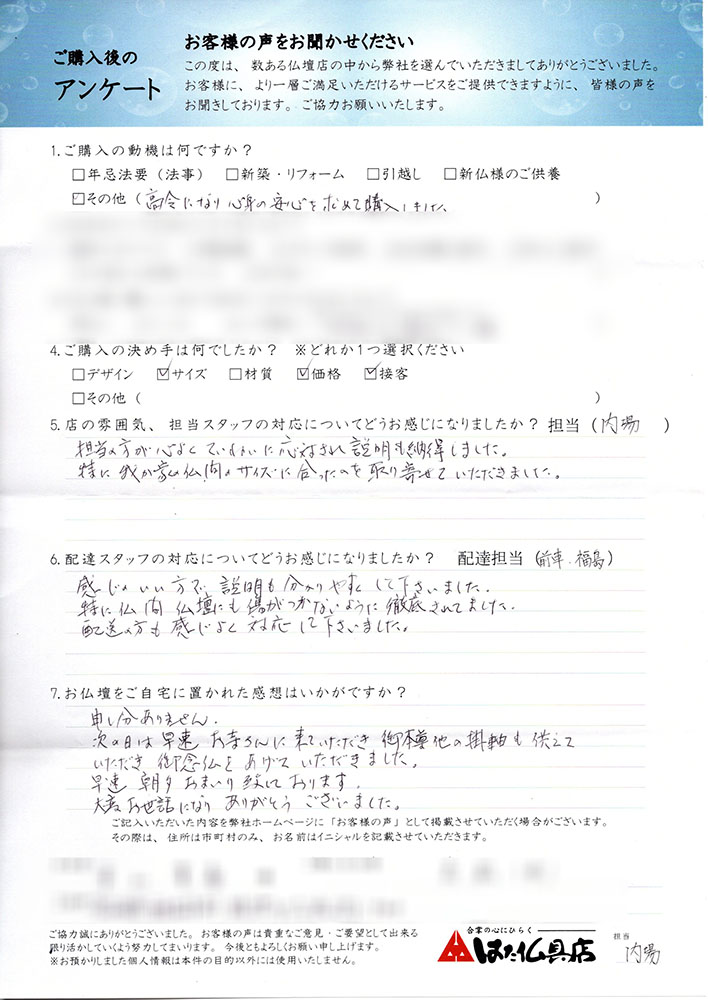 ご購入後の
アンケート
お客様の声をお聞かせください
この度は、数ある仏壇店の中から弊社を選んでいただきましてありがとうございました。
お客様に、より一層ご満足いただけるサービスをご提供できますように、皆様の声を
お聞きしております。ご協力お願いいたします。
1.ご購入の動機は何ですか？
□年忌法要（法事） □新築・リフォーム □引越し □新仏様のご供養
☑その他（高令になり心身の安心を求めて購入しました、）
4.ご購入の決め手は何でしたか？ ※どれか1つ選択ください
□デザイン ☑サイズ □材質 ☑価格 ☑接客
□その他（ ）
5.店の雰囲気、担当スタッフの対応についてどうお感じになりましたか？ 担当（内場 ）
担当の方が心よくていねいに応対され説明も納得しました。
特に我が家の仏間のサイズに合ったのを取り寄せていただきました。
6.配達スタッフの対応についてどうお感じになりましたか？ 配達担当（前車・福島）
感じのいい方で説明も分かりやすくして下さいました.
特に仏間 仏壇にも傷がつかないように徹底されてました.
配送の方も感じよく対応して下さいました。
7.お仏壇をご自宅に置かれた感想はいかがですか？
申し分ありません.
次の日は早速 お寺さんに来ていただき 御本尊他の掛軸も供えて
いただき 御念仏をあげていただきました。
早速 朝夕おまいり致しております.
大変お世話になり ありがとう ございました。
ご記入いただいた内容を弊社ホームページに「お客様の声」として掲載させていただく場合がございます。
その際は、住所は市町村のみ、お名前はイニシャルを記載させていただきます。
ご協力誠にありがとうございました。お客様の声は貴重なご意見・ご要望として出来る
限り活かしていくよう努力してまいります。今後ともよろしくお願い申し上げます。
※お預かりしました個人情報は本件の目的以外には使用いたしません。
合掌の心にひらく
はた仏具店
担当
内場